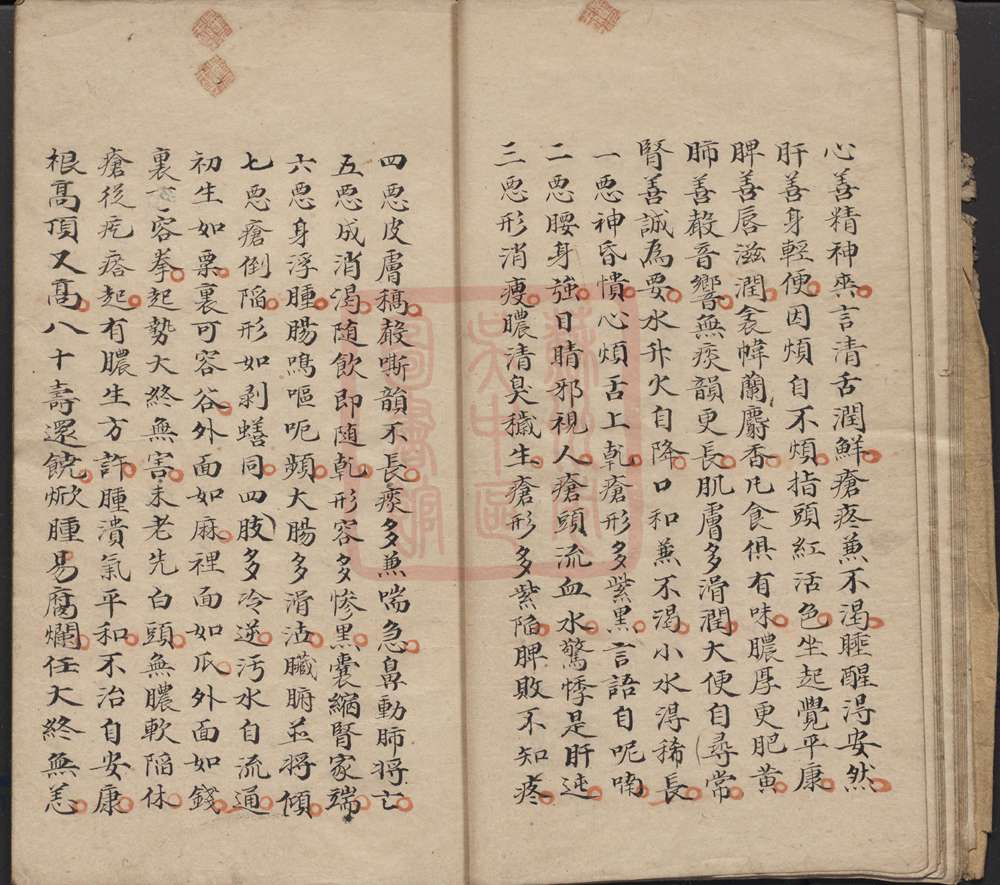 心善精神爽言清舌潤鮮瘡疼兼不渴睡醒得安然
肝善身輕便因煩自不煩指頭紅活色坐起覺平康
脾善唇滋潤衾幃蘭麝香凡食俱有味膿厚更肥黃
肺善聲音響無痰韻更長肌膚多滑潤大便自尋常
腎善誠為要水升火自降口和兼不渴小水得稀長
一惡神昏憒心煩舌上乾瘡形多紫黑言語自呢喃
二惡腰身強目睛邪視人瘡頭流血水驚悸是肝迍
三惡形消瘦膿清臭穢生瘡形多紫陷脾敗不知疼
四惡皮膚槁聲嘶韻不長痰多兼喘急鼻動肺將亡
五惡成消渴随飲即随乾形容多慘黑囊縮腎家端
六惡身浮腫腸鳴嘔呃頻大腸多滑沾臟腑並將傾
七惡瘡倒陷形如剥蟮同四肢多冷逆汚水自流通
初生如粟裏可容谷外面如麻裡面如瓜外面如錢
裏可容拳起勢大終無害未老先白頭無膿軟陷休
瘡後疙瘩起有膿生方許腫潰氣平和不治自安康
根高頂又高八十壽還饒焮腫易腐爛任大終無恙